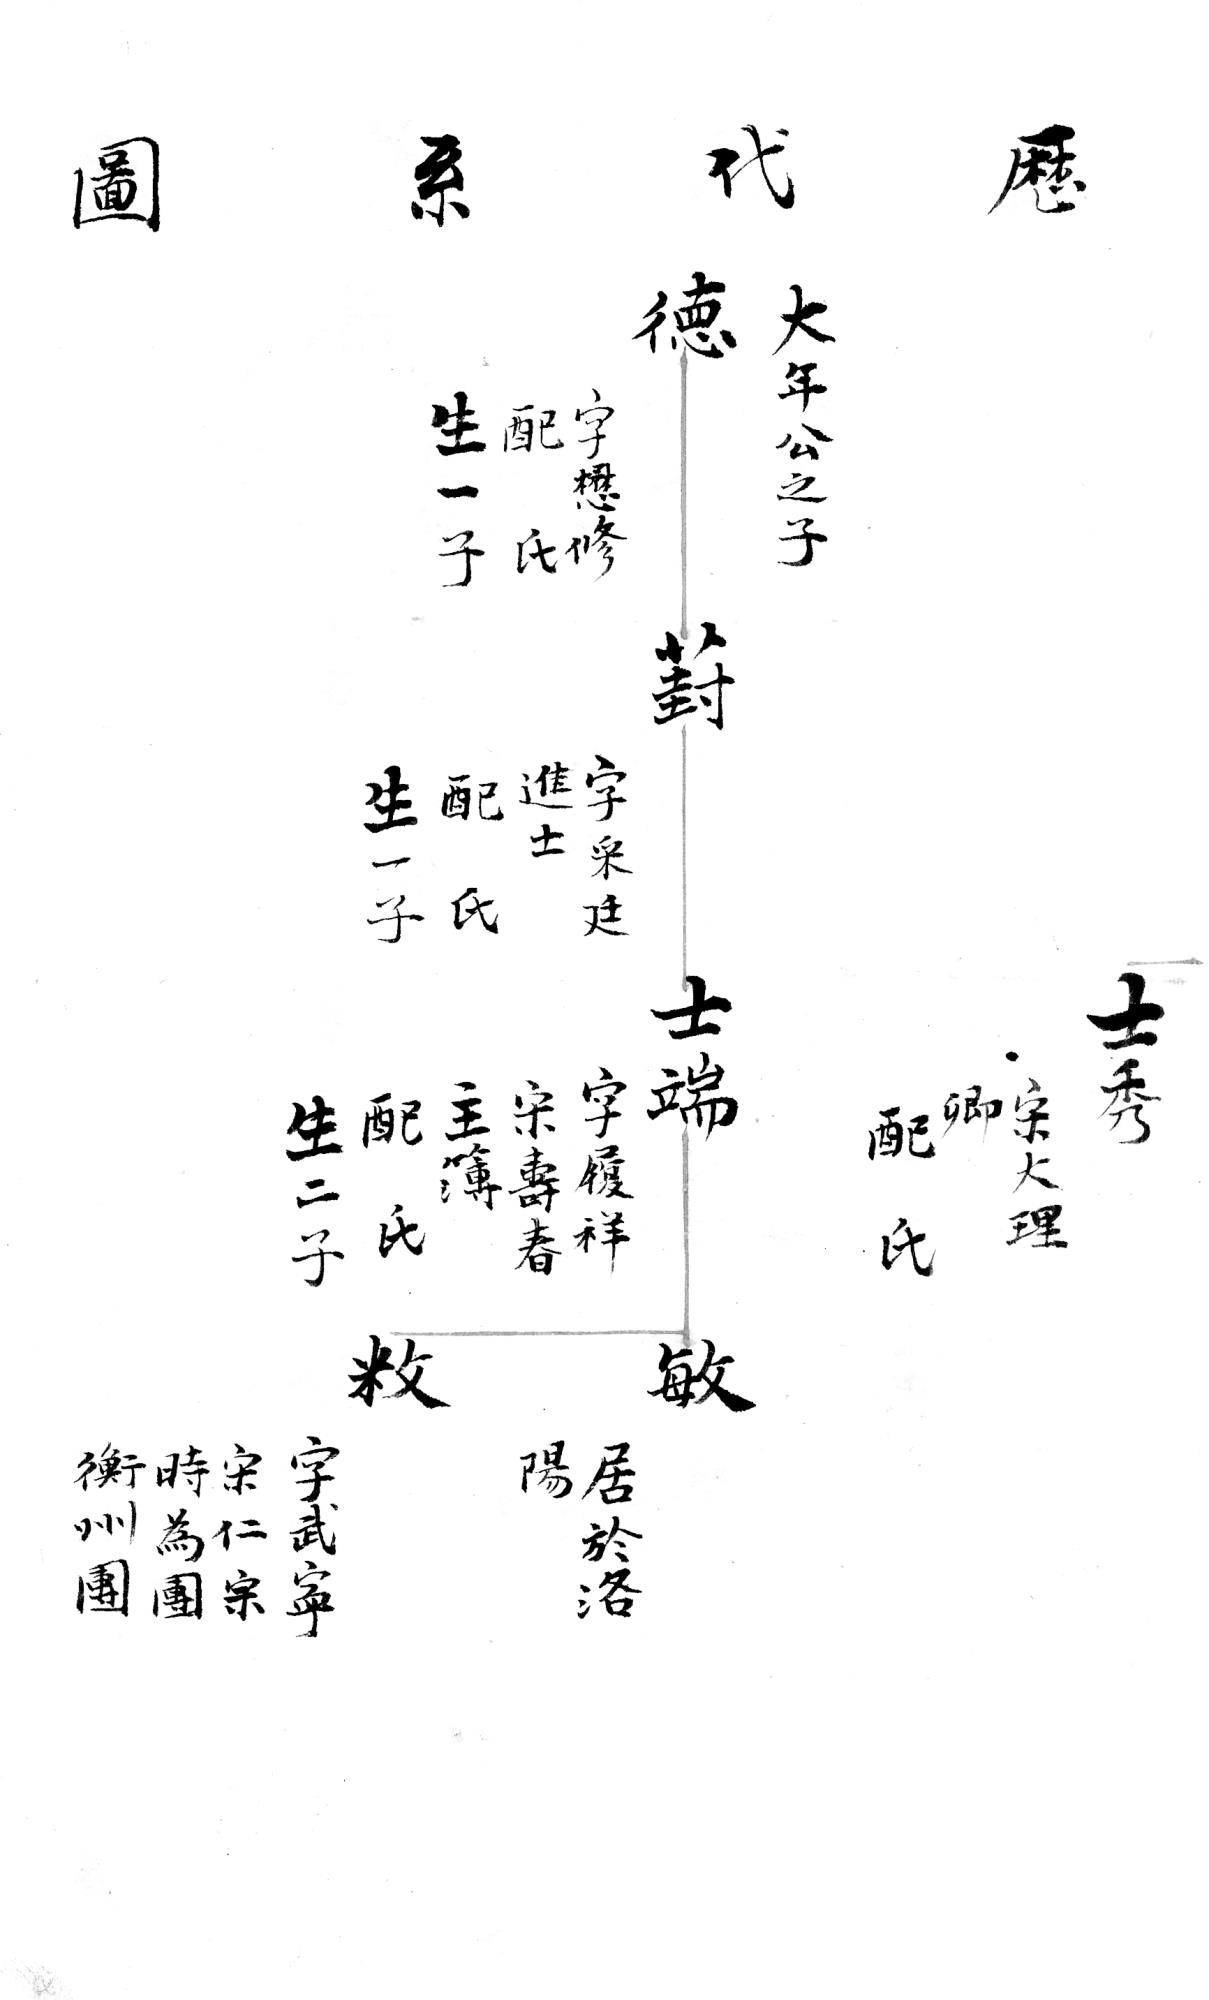 歷代系圖
士秀
宋大理
卿
配氏
大年公之子
德
字懋修
配氏
生一子
葑
字采廷
進士
配氏
生一子
士端
字履祥
宋壽春
主簿
配氏
生二子
敏
居於洛
陽
敉
字武寧
宋仁宗
時為團
衡州團